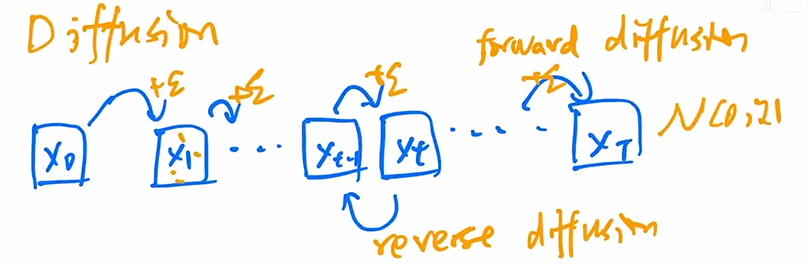 Diffusion
forward diffusion
+ε +ε +ε +ε
x₀ x₁ ... xₜ₋₁ xₜ .... x_T N(0,I)
reverse diffusion